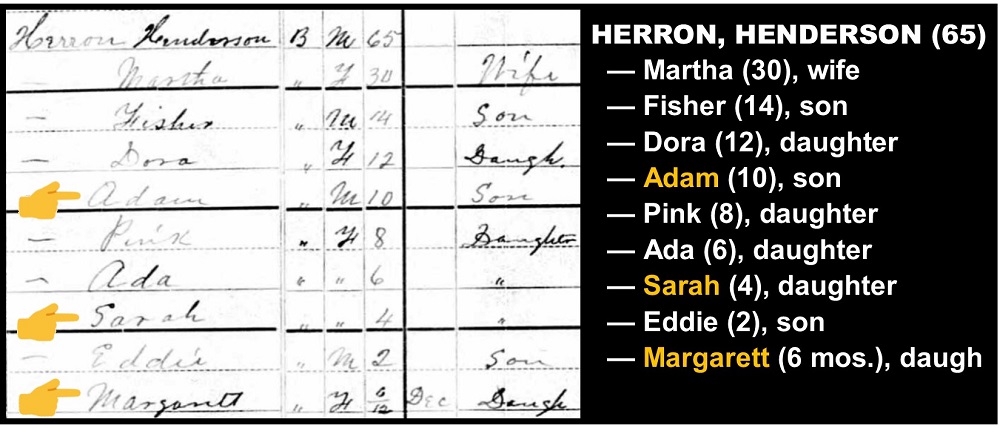 Herron Henderson B M 65
— Martha " F 30 Wife
— Fisher " M 14 Son
— Dora " F 12 Daugh.
Adam M 10 Son
— Pink " F 8 Daughter
— Ada " " 6 "
Sarah " " 4 "
— Eddie " M 2 Son
Margarett " F 6/12 Dec Daugh
HERRON, HENDERSON (65)
— Martha (30), wife
— Fisher (14), son
— Dora (12), daughter
— Adam (10), son
— Pink (8), daughter
— Ada (6), daughter
— Sarah (4), daughter
— Eddie (2), son
— Margarett (6 mos.), daugh